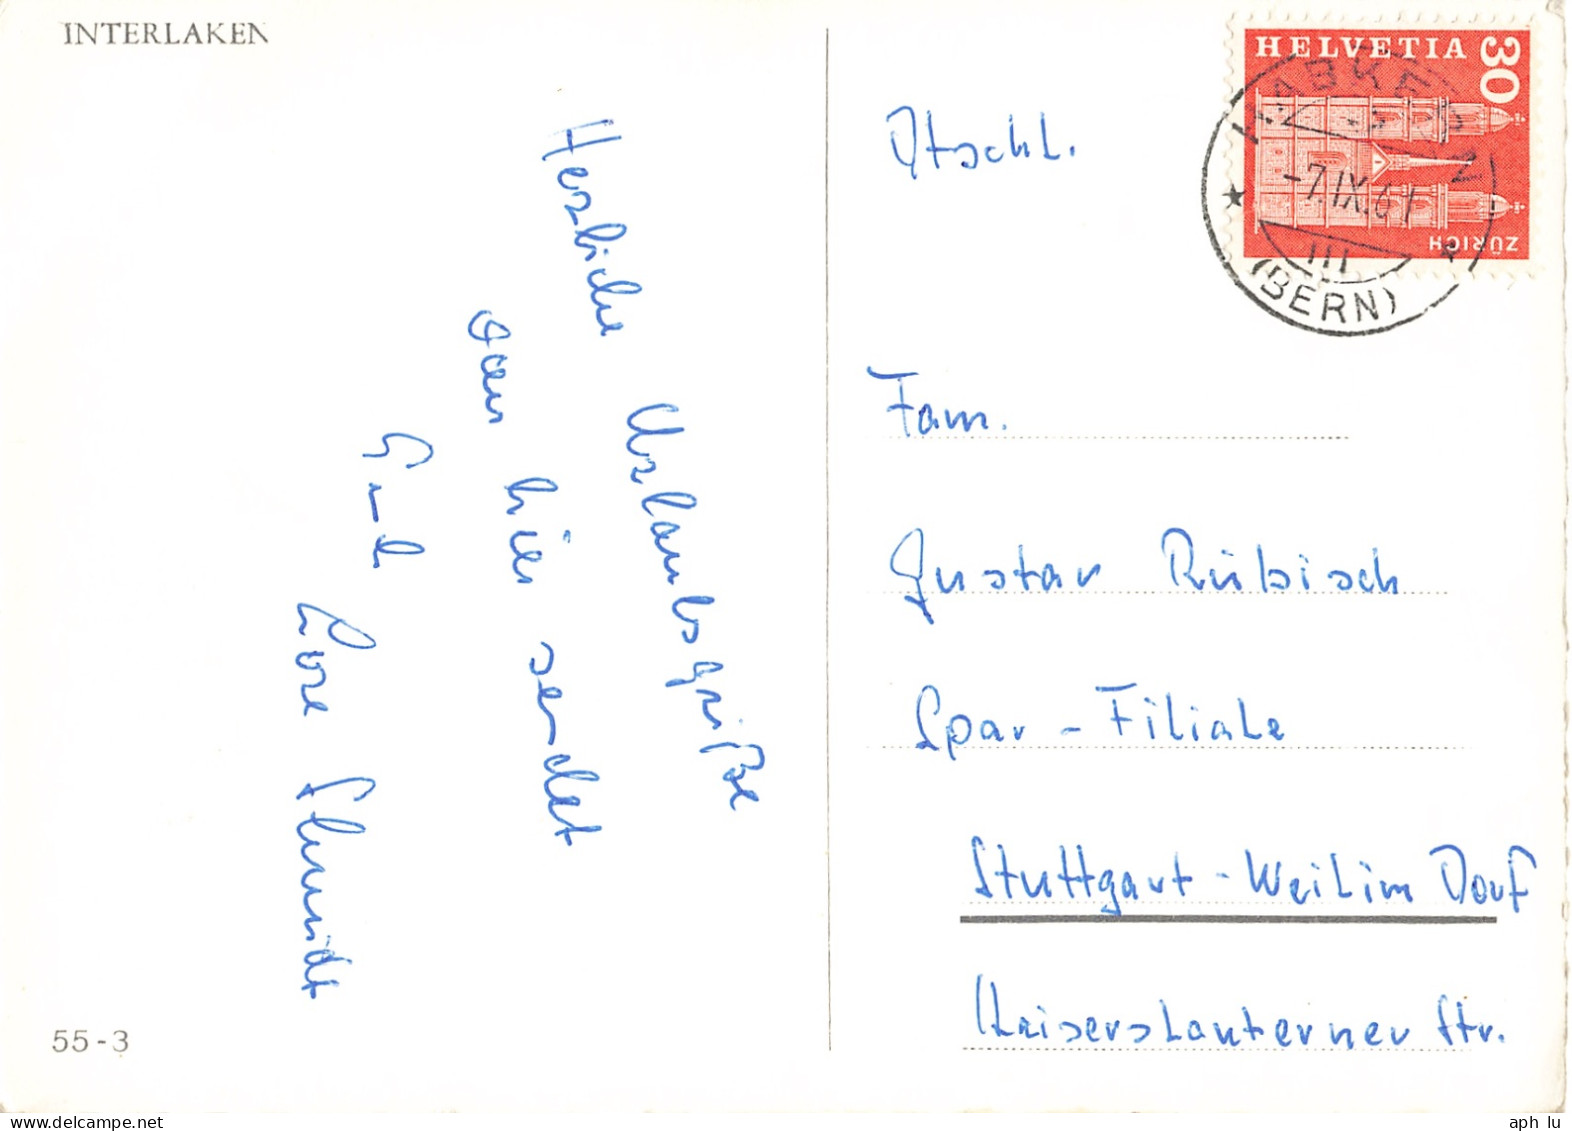 INTERLAKEN
Herzliche Urlaubsgrüße
von hier sendet
Lore Schmidt
55-3
HELVETIA
30
ZÜRICH
HABKERN
-7.IX.61
III
(BERN)
Dtschl.
Fam.
Gustav Rübisch
Spar-Filiale
Stuttgart-Weilim Dorf
Kaiserslauterner Str.
aph lu